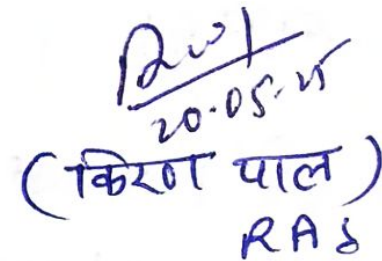 20.05.25
(किरण पाल)
RAS